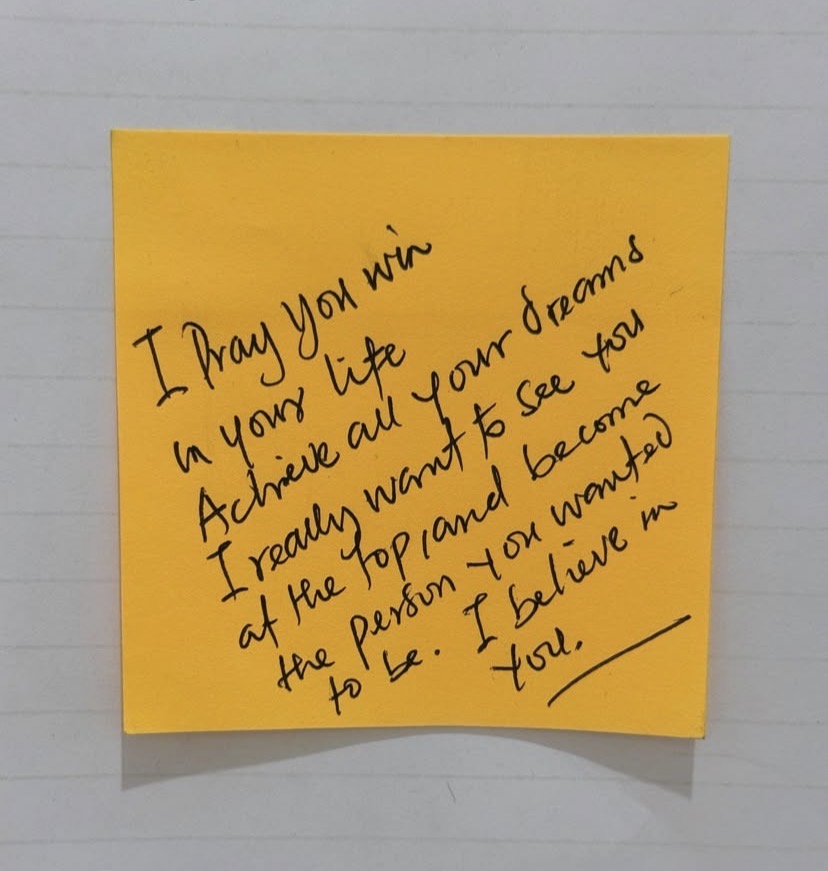 I Pray You win
in your life
Achieve all your dreams
I really want to see you
at the top, and become
the person you wanted
to be. I believe in
you.